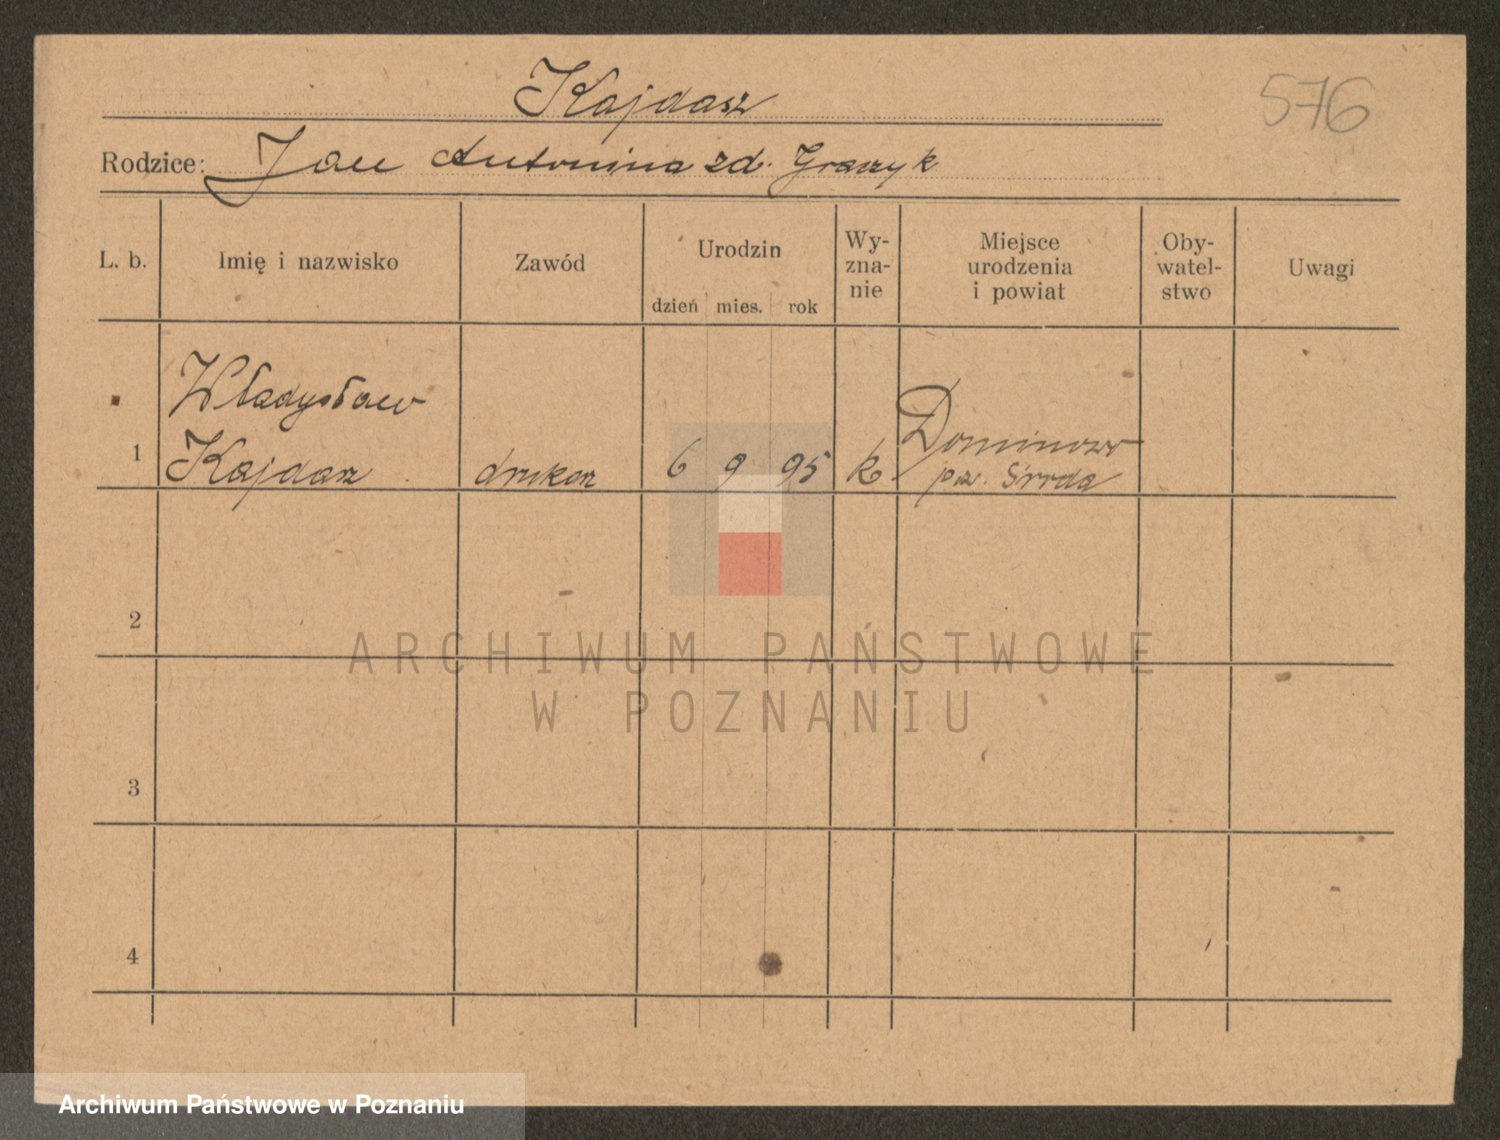 Kajdasz
576
Rodzice: Jan Antonina zd. Graczyk
L. b. Imię i nazwisko Zawód Urodzin Wy- Miejsce Oby- Uwagi
zna- urodzenia watel-
nie i powiat stwo
dzień mies. rok
Władysław
1 Kajdasz drukarz 6 9 95 k. Dominowo
pow. Środa
2
ARCHIWUM PAŃSTWOWE
W POZNANIU
3
4
Archiwum Państwowe w Poznaniu